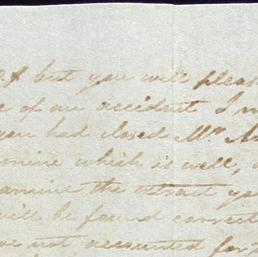 but you will pleas
e of an accident I m
you had closed Mr. M
omine which is well,
amine the extract yo
will be found correct
ve not accounted for